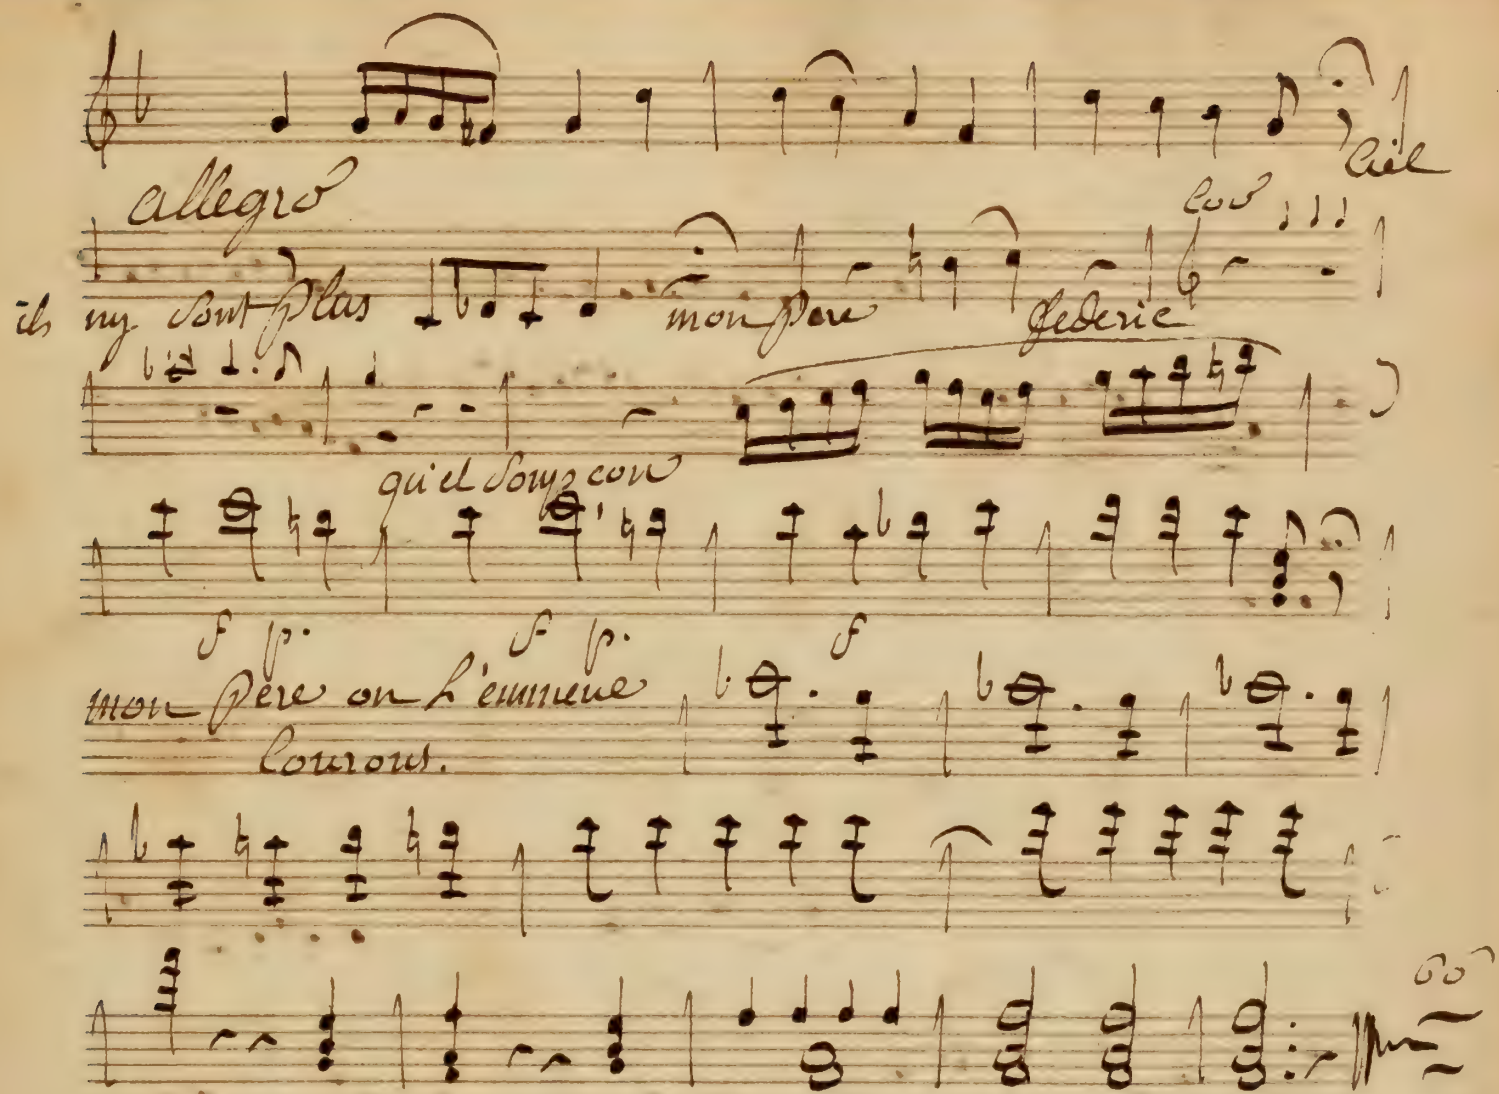 Ciel
allegro
Cor
ils ny sont plus mon pere federic
qu'el soupcon
f p. f p. f
mon pere on l'emmene
Courons.